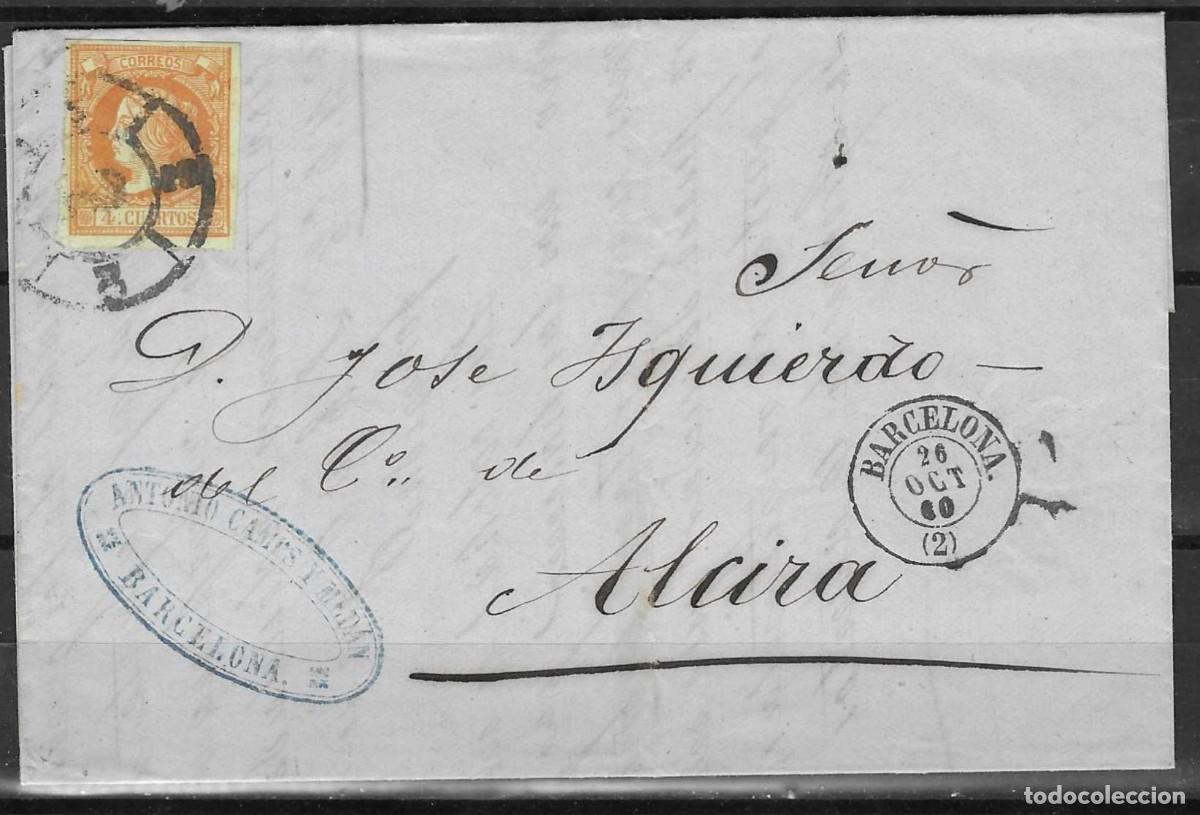 CORREOS
4 CUARTOS
Señor
D. Jose Izquierdo —
del Co. de
Alcira
BARCELONA.
26
OCT
60
(2)
ANTONIO CAMPS Y
BARCELONA.
todocoleccion